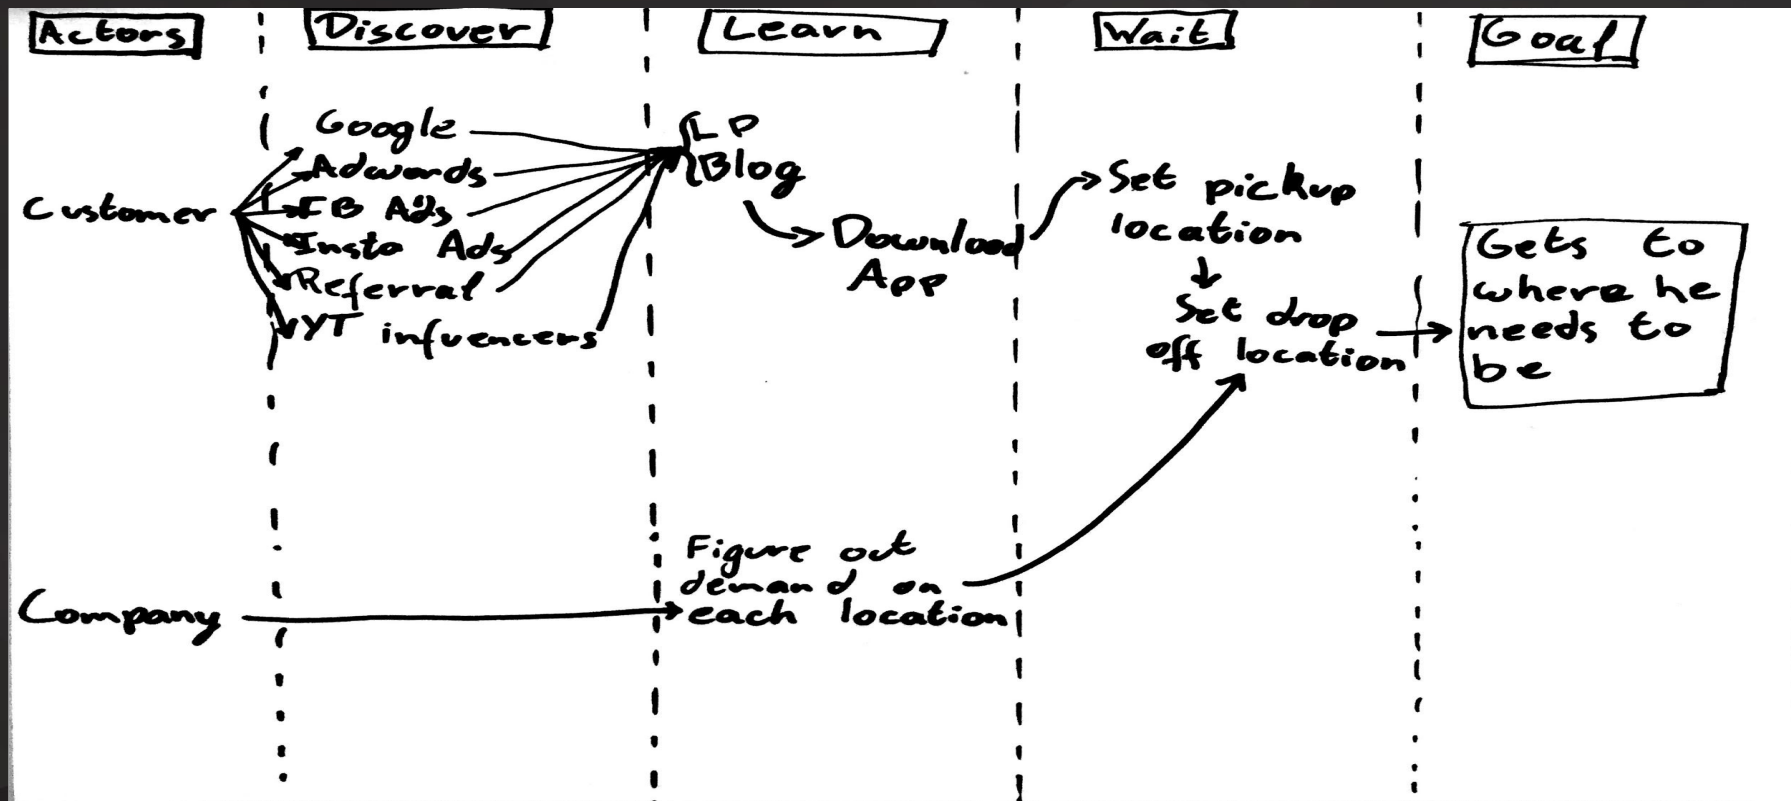 Actors
Discover
Learn
Wait
Goal
Customer
Google
Adwords
FB Ads
Insta Ads
Referral
YT infuencers
LP
Blog
Download
App
Set pickup
location
Set drop
off location
Gets to
where he
needs to
be
Company
Figure out
demand on
each location